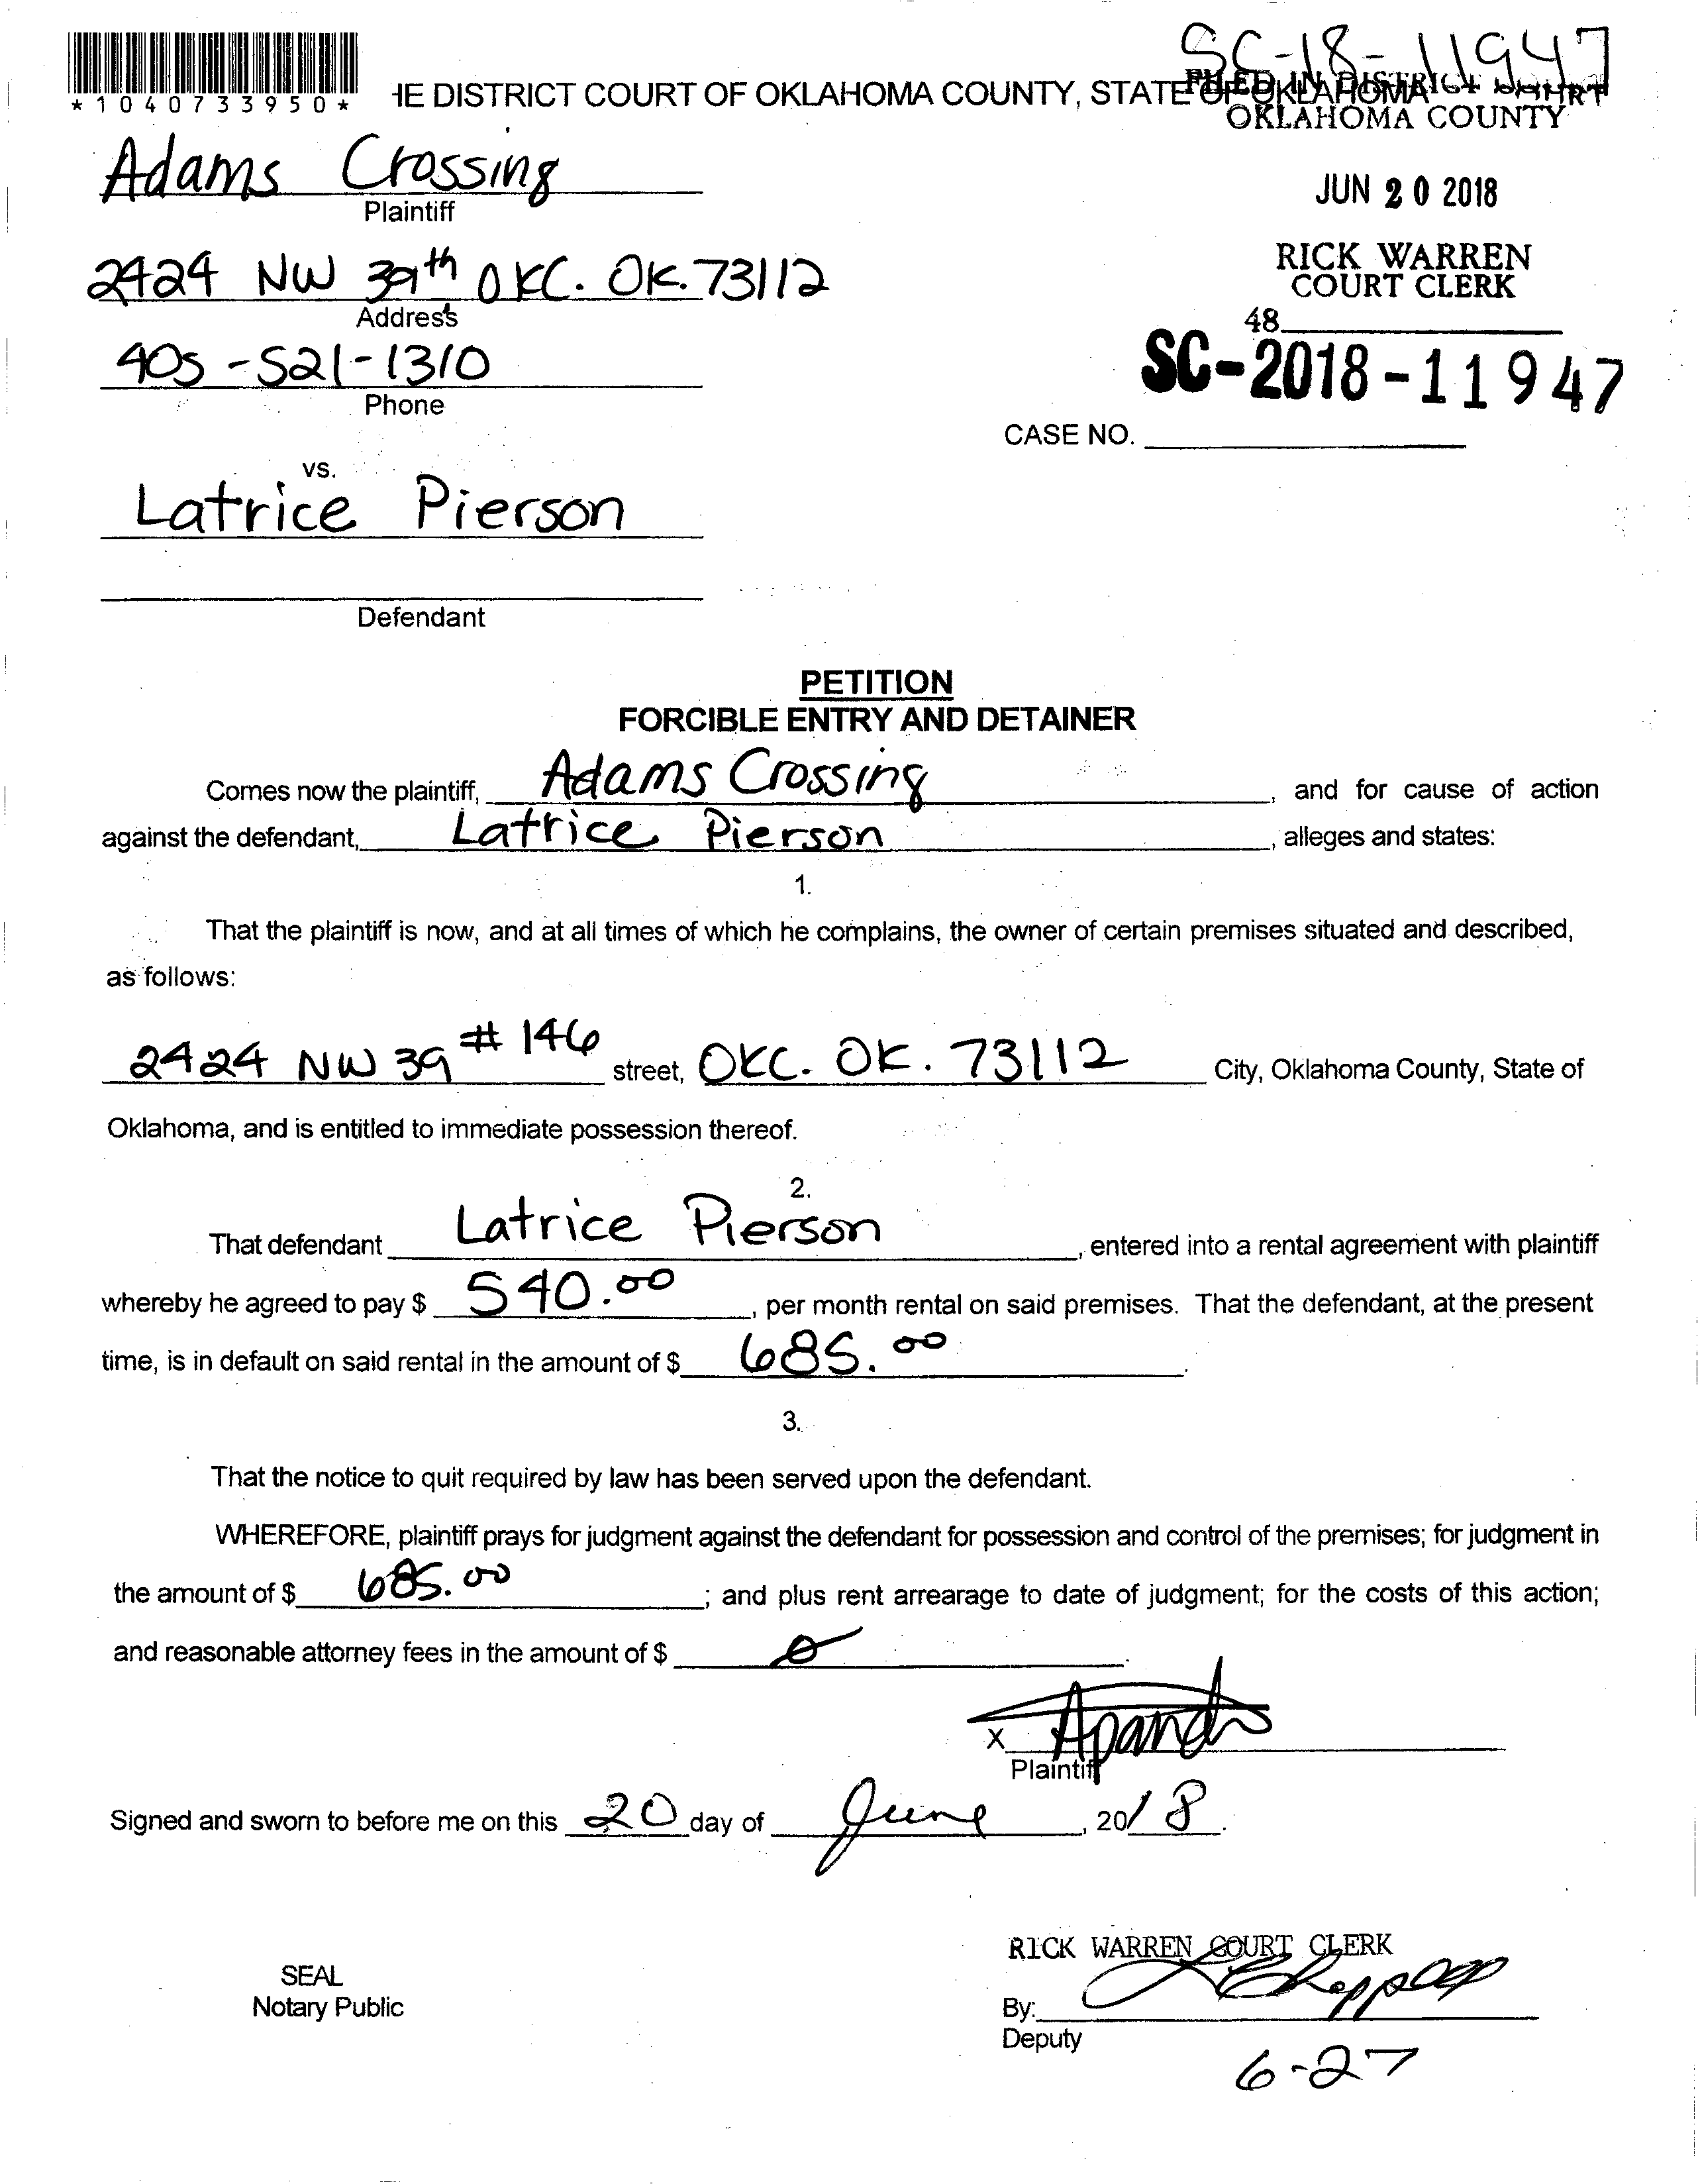 SC-18-11947
*1040733950*
HE DISTRICT COURT OF OKLAHOMA COUNTY, STATE OF OKLAHOMA
FILED IN DISTRICT COURT
OKLAHOMA COUNTY
Adams Crossing
Plaintiff
JUN 20 2018
2424 NW 39th OKC. OK. 73112
Address
RICK WARREN
COURT CLERK
48
405-521-1310
Phone
SC-2018-11947
CASE NO.
vs.
Latrice Pierson
Defendant
PETITION
FORCIBLE ENTRY AND DETAINER
Comes now the plaintiff, Adams Crossing, and for cause of action
against the defendant, Latrice Pierson, alleges and states:
1.
That the plaintiff is now, and at all times of which he complains, the owner of certain premises situated and described,
as follows:
2424 NW 39 # 146 street, OKC. OK. 73112 City, Oklahoma County, State of
Oklahoma, and is entitled to immediate possession thereof.
2.
That defendant Latrice Pierson, entered into a rental agreement with plaintiff
whereby he agreed to pay $ 540.00, per month rental on said premises. That the defendant, at the present
time, is in default on said rental in the amount of $ 685.00.
3.
That the notice to quit required by law has been served upon the defendant.
WHEREFORE, plaintiff prays for judgment against the defendant for possession and control of the premises; for judgment in
the amount of $ 685.00; and plus rent arrearage to date of judgment; for the costs of this action;
and reasonable attorney fees in the amount of $ 0.
X
Plaintiff
Signed and sworn to before me on this 20 day of June, 2018.
RICK WARREN COURT CLERK
SEAL
Notary Public
By:
Deputy
6-27